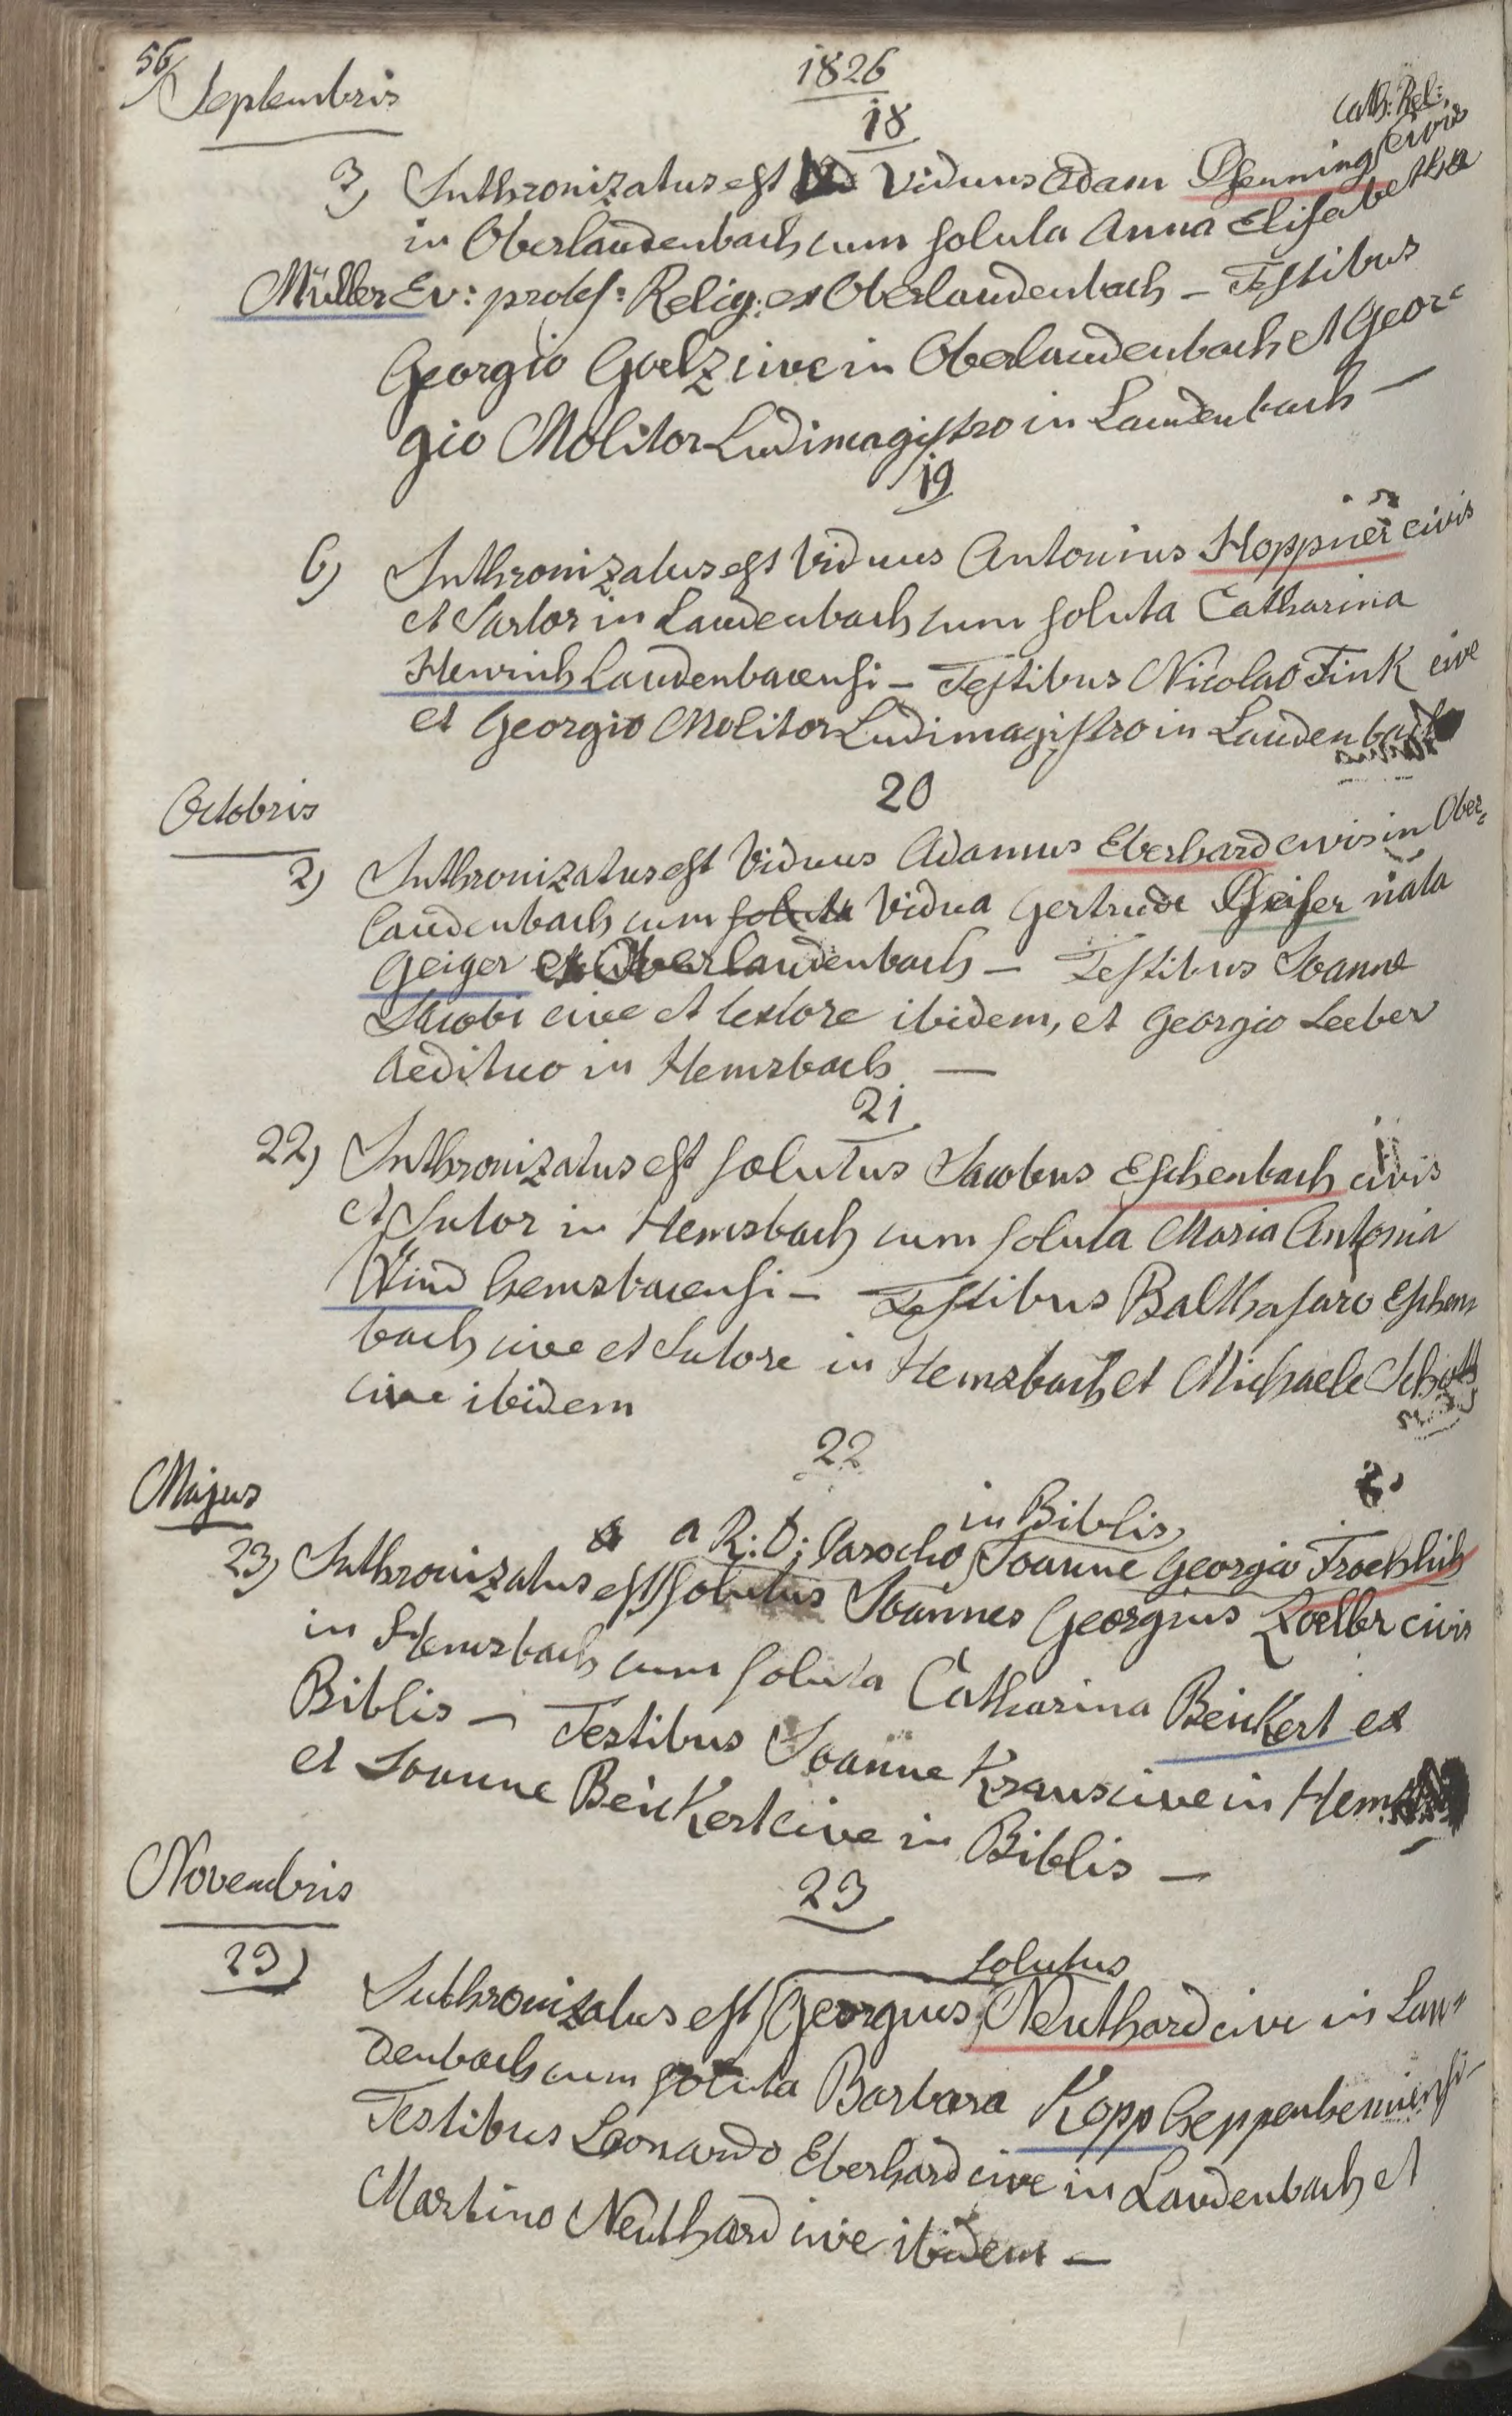 56
1826
Septembris
18
Cath: Rel:
3) Inthronizatus est Viduus Adam Pfenning, civis
in Oberlaudenbach cum soluta Anna Elisabetha
Müller Ev: protest: Relig: ex Oberlaudenbach – Testibus
Georgio Goelz cive in Oberlaudenbach et Geor=
gio Molitor Ludimagistro in Laudenbach –
19
6) Inthronizatus est Viduus Antonius Hoppner civis
et Sartor in Laudenbach cum soluta Catharina
Henrich Laudenbacensi – Testibus Nicolao Fink cive
et Georgio Molitor Ludimagistro in Laudenbach
20
Octobris
2) Inthronizatus est Viduus Adamus Eberhard civis in Ober=
laudenbach cum soluta Vidua Gertrude Pfeifer nata
Geiger ex Oberlaudenbach – Testibus Joanne
Jacobi cive et textore ibidem, et Georgio Leeber
Aedituo in Hemsbach –
21
22) Inthronizatus est solutus Jacobus Eschenbach civis
et Sutor in Hemsbach cum soluta Maria Antonia
Wind hemsbacensi – Testibus Balthasaro Eschen
bach cive et Sutore in Hemsbach et Michaele Schott
cive ibidem
22
Majus
in Biblis,
a R: D: Parocho Joanne Georgio Froehlich
23) Inthronizatus est solutus Joannes Georgius Koeller civis
in Hemsbach cum soluta Catharina Beickert ex
Biblis – Testibus Joanne Kraus cive in Hems
et Joanne Beickert cive in Biblis –
Novembris
23
solutus
29) Inthronizatus est Georgius Neuthard cive in Lau=
denbach cum soluta Barbara Kopp heppenhemiensi –
Testibus Leonardo Eberhard cive in Laudenbach et
Martino Neuthard cive ibidem –